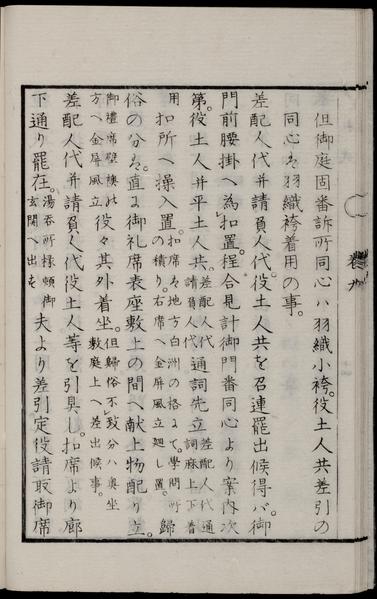 但御庭固番訴所同心ハ羽織小袴。役土人共差引の
同心は羽織袴着用の事。
差配人代并請負人代。役土人共を召連罷出候得バ。御
門前腰掛へ為扣置。程合見計御門番同心より案内次
第。役土人并平土人共。差配人代請負人代通詞先立差配人代通詞麻上下着
用扣所へ操入置。扣席は地方白洲の格にて。學問所の積り。右席へ金屏風立廻し置。歸
俗の分は。直に御礼席表座敷上の間へ献上物配り立。
御禮席壁襖此方へ金屏風立役々其外着坐。但歸俗不致分ハ奥坐敷庭上へ差出候事。
差配人代并請負人代役土人等を引具し。扣席より廊
下通り罷在。湯呑所様頬御玄関へ出す夫より差引定役請取御席
巻九